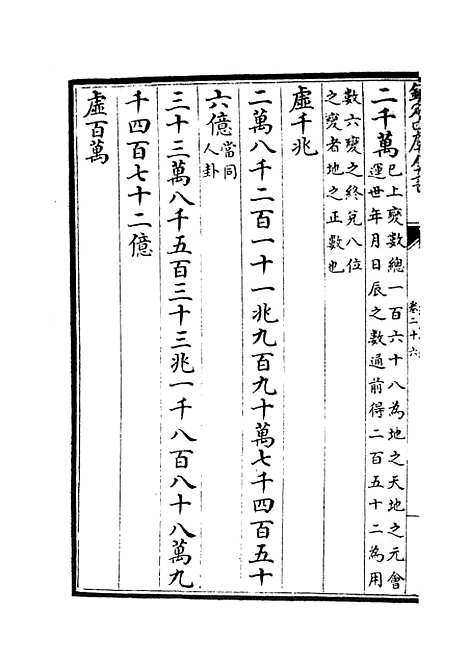 欽定四庫全書
卷二十六
二千萬已上變數總一百六十八為地之天地之元會
運世年月日辰之數通前得二百五十二為用
數六變之終兊八位
之變者地之正數也
虛千兆
二萬八千二百一十一兆九百九十萬七千四百五十
六億當同
人卦
三十三萬八千五百三十三兆一千八百八十八萬九
千四百七十二億
虛百萬